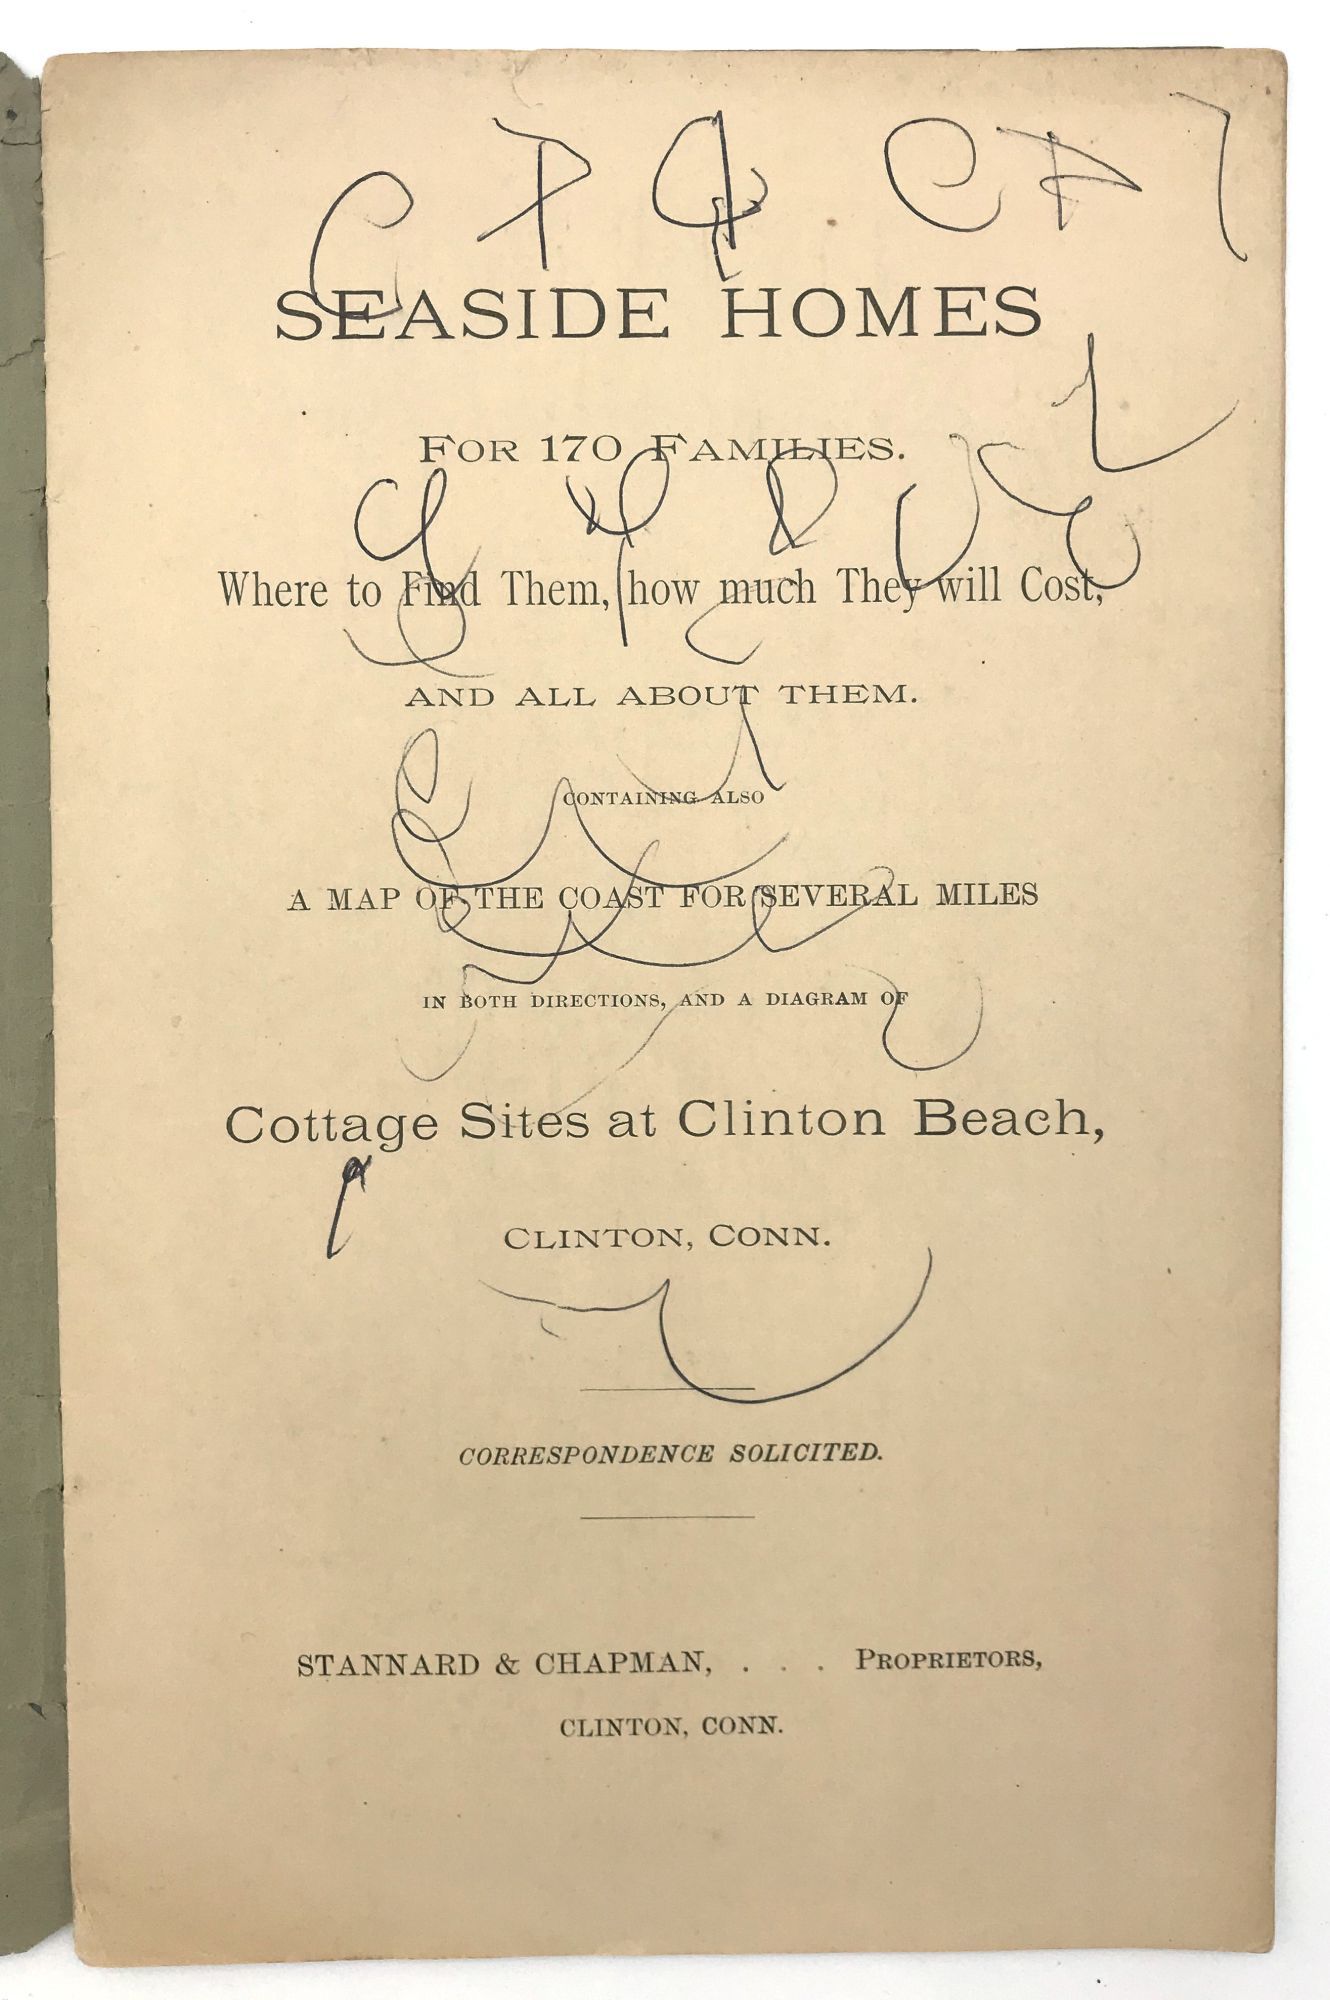 SEASIDE HOMES
FOR 170 FAMILIES.
Where to Find Them, how much They will Cost,
AND ALL ABOUT THEM.
CONTAINING ALSO
A MAP OF THE COAST FOR SEVERAL MILES
IN BOTH DIRECTIONS, AND A DIAGRAM OF
Cottage Sites at Clinton Beach,
CLINTON, CONN.
CORRESPONDENCE SOLICITED.
STANNARD & CHAPMAN, . . . PROPRIETORS,
CLINTON, CONN.